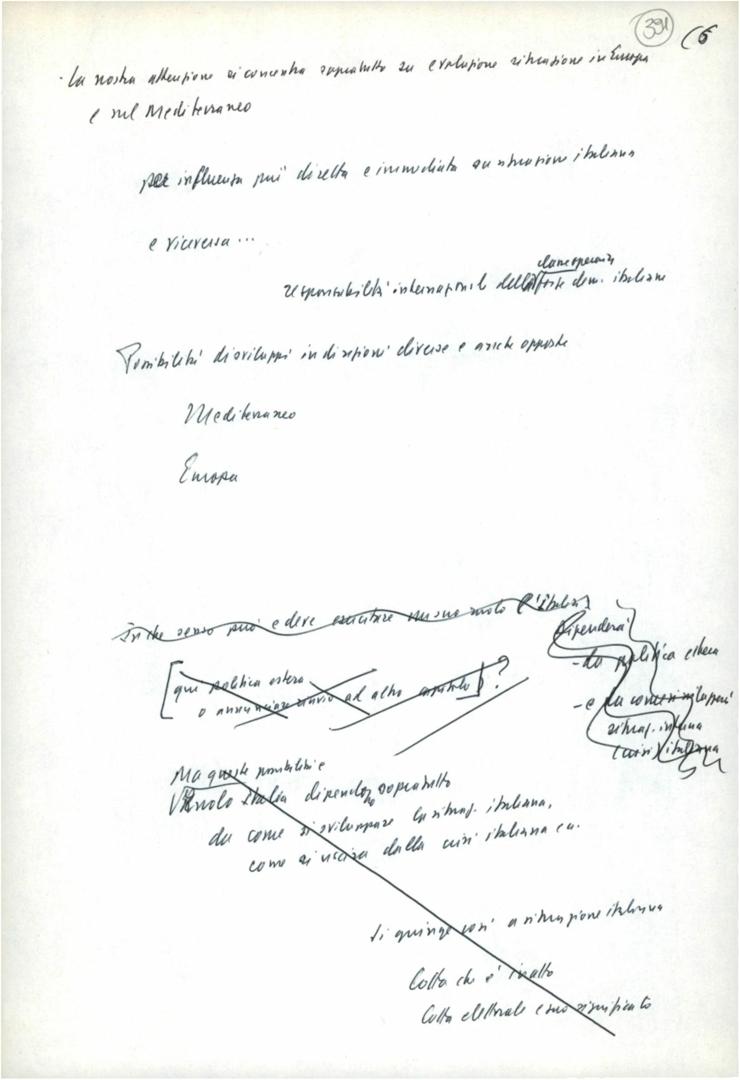 391
(6
· La nostra attenzione si concentra sopratutto su evoluzione situazione in Europa
e nel Mediterraneo
per influenza più diretta e immediata su situazione italiana
e viceversa ...
classe operaia
responsabilità internazionale della forze dem. italiane
Possibilità di sviluppi in direzioni diverse e anche opposte
Mediterraneo
Europa
In che senso può e deve esercitare suo ruolo l'Italia]
[qui politica estera
o annunciare rinvio ad altro capitolo]?
Dipenderà
- da politica estera
- e da come si sviluppi
situaz. interna
(crisi) italiana
Ma queste possibilità e
ruolo Italia dipendono sopratutto
da come si sviluppare la situaz. italiana,
come si uscirà dalla crisi italiana ecc.
Si giunge così a situazione italiana
Lotta che è in atto
Lotta elettorale e suo significato